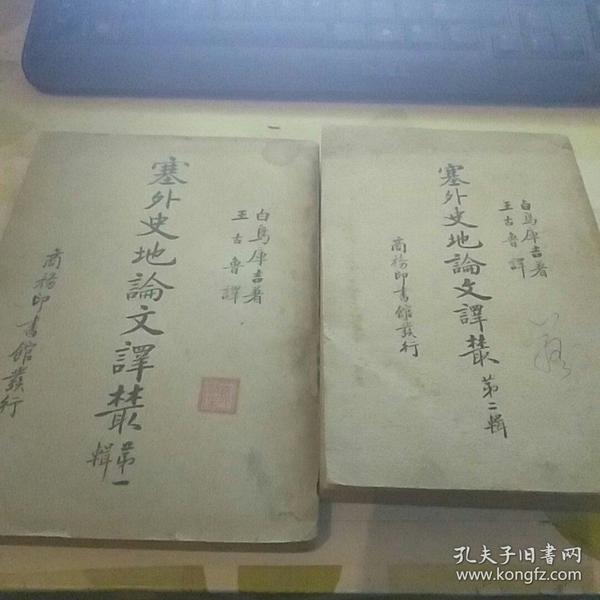 白鳥庫吉著
王古魯譯
塞外史地論文譯叢第一輯
商務印書館發行
白鳥庫吉著
王古魯譯
塞外史地論文譯叢第二輯
商務印書館發行
孔夫子旧書网
www.kongfz.com